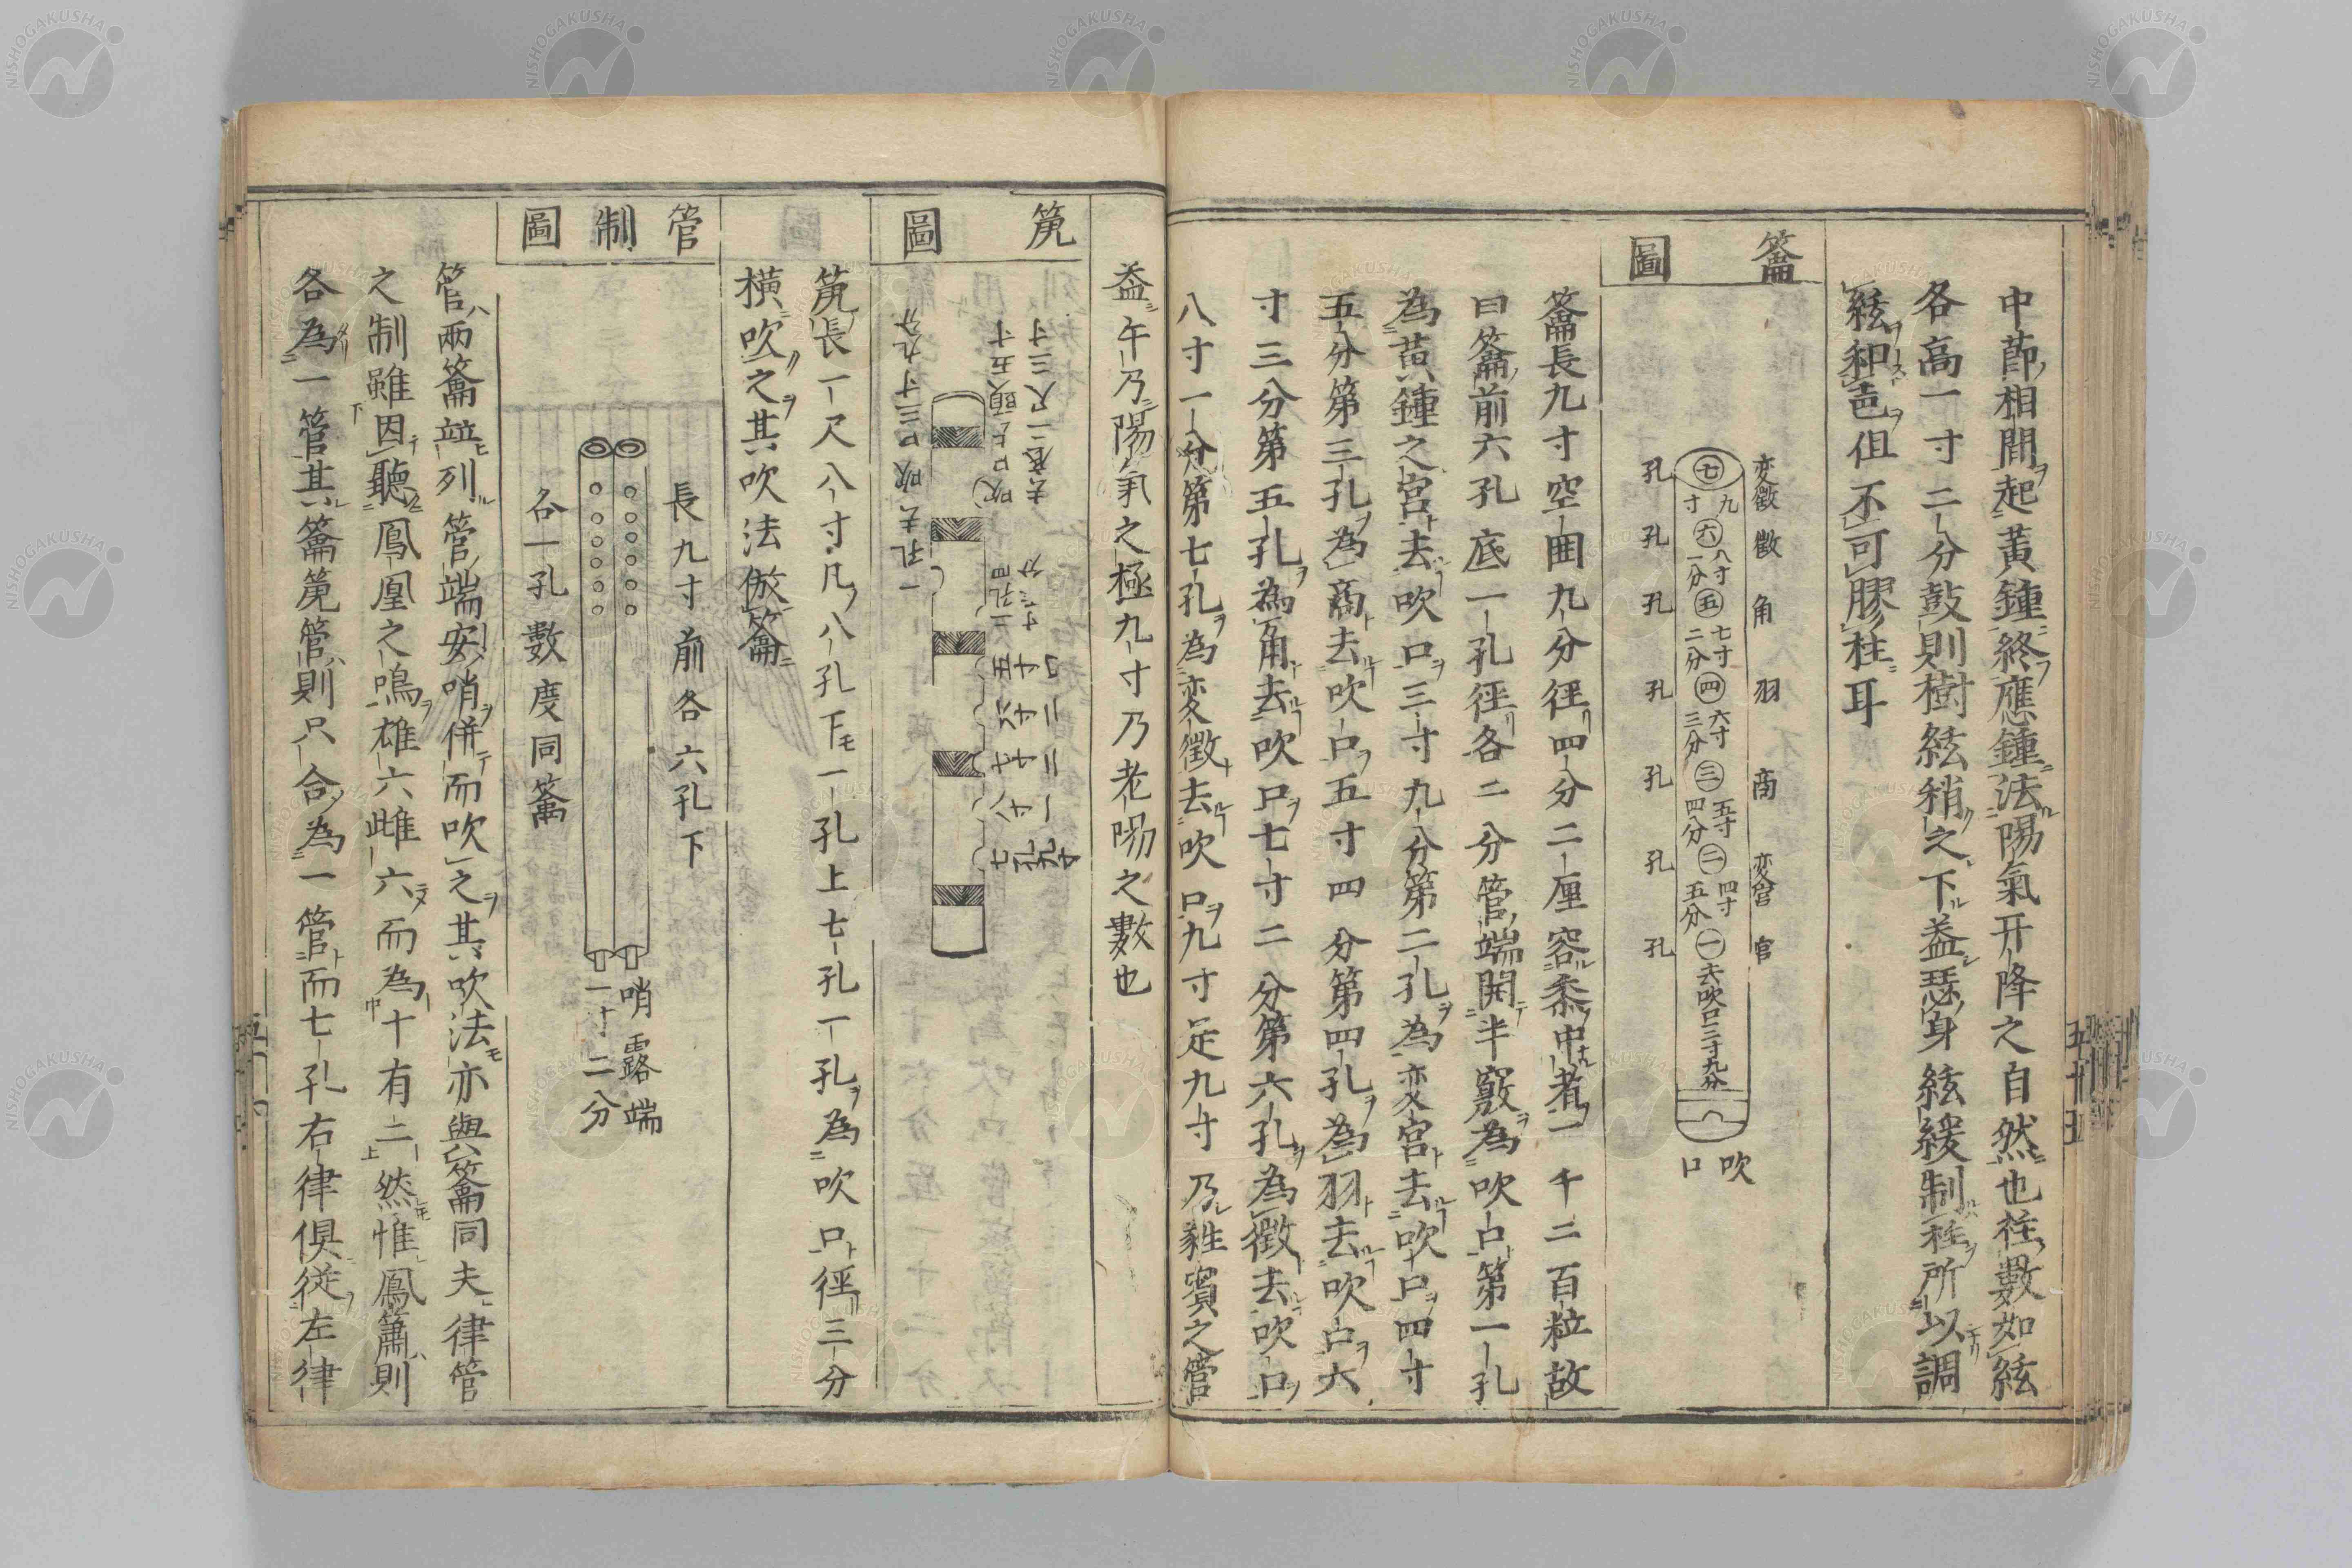 中莭相間起黃鍾終應鍾法陽氣升降之自然也柱數如絃
各高一寸二分鼓則樹絃稍之下益瑟身絃緩制柱所以調
絃和声但不可膠柱耳
籥圖
変徵 徵 角 羽 商 変宮 宮
七 九寸 六 八寸一分 五 七寸二分 四 六寸三分 三 五寸四分 二 四寸五分 一 去吹口三寸九分
孔 孔 孔 孔 孔 孔 孔
吹口
籥長九寸空囲九分徑四分二厘容黍中者一千二百粒故
曰籥前六孔底一孔徑各二分管端開半竅為吹口第一孔
為黃鍾之宮去吹口三寸九分第二孔為変宮去吹口四寸
五分第三孔為商去吹口五寸四分第四孔為羽去吹口六
寸三分第五孔為角去吹口七寸二分第六孔為徵去吹口
八寸一分第七孔為変徵去吹口九寸足九寸乃蕤賓之管
益午乃陽氣之極九寸乃老陽之數也
箎圖
吹口上頭五寸
一孔去吹口三寸九分
箎長一尺八寸凡八孔下一孔上七孔一孔為吹口徑三分
橫吹之其吹法倣籥
管制圖
長九寸前各六孔下
各一孔數度同籥
哨露端
一寸二分
管兩籥竝列管端安哨併而吹之其吹法亦與籥同夫律管
之制雖因聽鳳凰之鳴雄六雌六而為十有二然惟鳳簫則
各為一管其籥箎管則只合為一管而七孔右律俱從左律
五十五